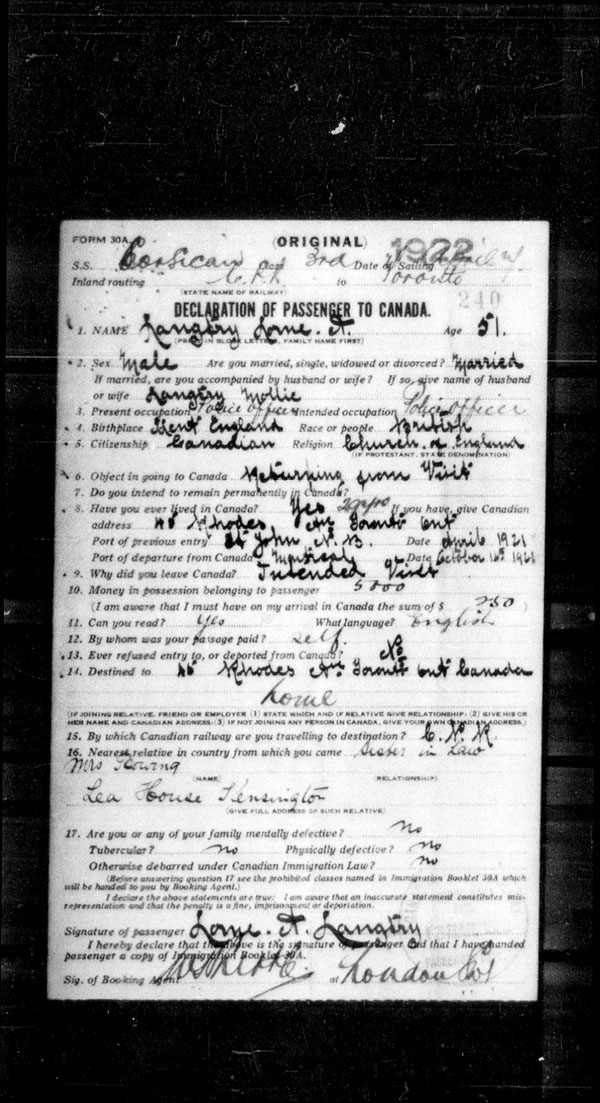 FORM 30A (ORIGINAL) 1922
S.S. Corsican class 3rd Date of Sailing April
Inland routing C.P.R to Toronto
(STATE NAME OF RAILWAY) 240
DECLARATION OF PASSENGER TO CANADA.
1. NAME Langtry Lorne. A. Age 51.
(PRINT IN BLOCK LETTERS, FAMILY NAME FIRST)
2. Sex Male Are you married, single, widowed or divorced? Married
If married, are you accompanied by husband or wife? If so, give name of husband
or wife Langtry Mollie
3. Present occupation Police officer Intended occupation Police officer
4. Birthplace Kent England Race or people British
5. Citizenship Canadian Religion Church of England
(IF PROTESTANT, STATE DENOMINATION)
6. Object in going to Canada Returning from Visit
7. Do you intend to remain permanently in Canada?
8. Have you ever lived in Canada? Yes If you have, give Canadian
address 45 Rhodes Av Toronto Ont
Port of previous entry St John N.B. Date April 1921
Port of departure from Canada Montreal Date October 1921
9. Why did you leave Canada? Intended Visit
10. Money in possession belonging to passenger 5000
(I am aware that I must have on my arrival in Canada the sum of $ 250)
11. Can you read? Yes What language? English
12. By whom was your passage paid? Self.
13. Ever refused entry to, or deported from Canada? No
14. Destined to 45 Rhodes Av Toronto Ont Canada
home
(IF JOINING RELATIVE, FRIEND OR EMPLOYER (1) STATE WHICH AND IF RELATIVE GIVE RELATIONSHIP: (2) GIVE HIS OR
HER NAME AND CANADIAN ADDRESS: (3) IF NOT JOINING ANY PERSON IN CANADA, GIVE YOUR OWN CANADIAN ADDRESS.)
15. By which Canadian railway are you travelling to destination? C.P.R.
16. Nearest relative in country from which you came Sister in Law
Mrs
(NAME) (RELATIONSHIP)
Lea House Kensington
(GIVE FULL ADDRESS OF SUCH RELATIVE)
17. Are you or any of your family mentally defective? No
Tubercular? no Physically defective? no
Otherwise debarred under Canadian Immigration Law? no
(Before answering question 17 see the prohibited classes named in Immigration Booklet 30A which
will be handed to you by Booking Agent.)
I declare the above statements are true: I am aware that an inaccurate statement constitutes mis-
representation and that the penalty is a fine, imprisonment or deportation.
Signature of passenger Lorne. A. Langtry
I hereby declare that the above is the signature of passenger and that I have handed
passenger a copy of Immigration Booklet 30A.
Sig. of Booking Agent at London